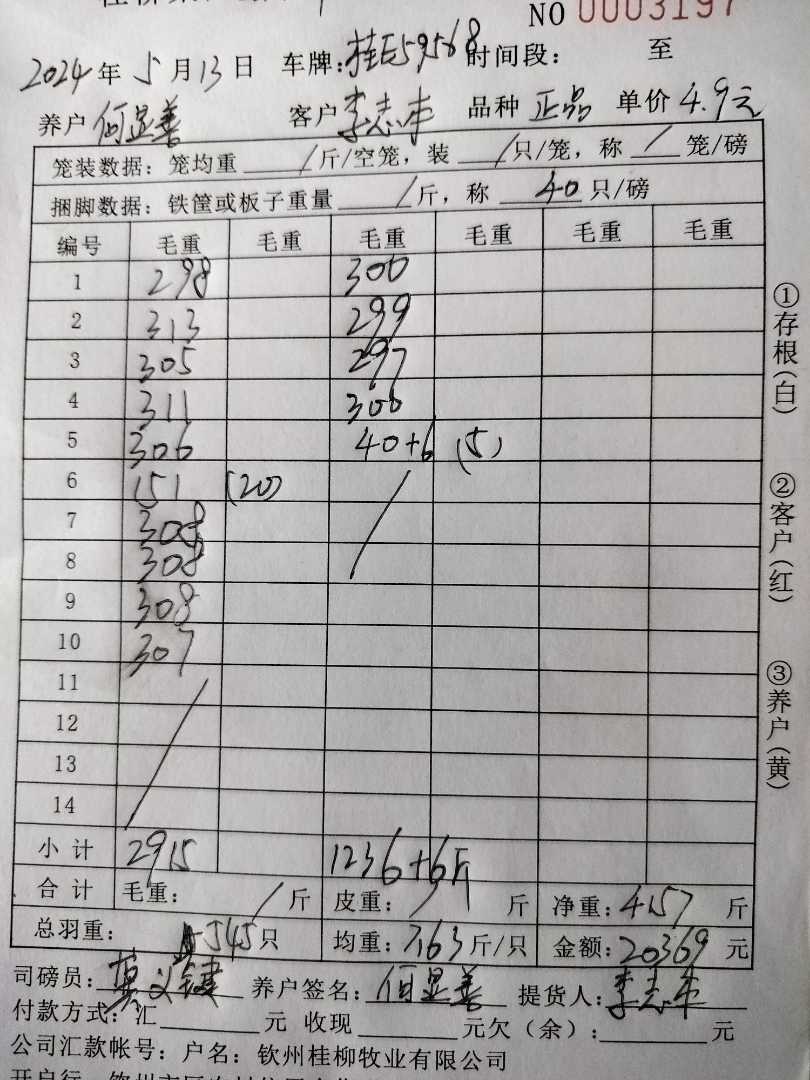 NO 0003197
2024年5月13日 车牌:桂E59568 时间段: 至
养户 何显善 客户 李志来 品种 正品 单价 4.9元
笼装数据:笼均重 / 斤/空笼,装 / 只/笼,称 / 笼/磅
捆脚数据:铁筐或板子重量 / 斤,称 40 只/磅
编号 毛重 毛重 毛重 毛重 毛重 毛重
1 298 300
2 313 299
3 305 297
4 311 300
5 306 40+6 (5)
6 151 (20)
7 308
8 308
9 308
10 307
11
12
13
14
小计 2915 1236+6斤
合计 毛重: / 斤 皮重: / 斤 净重:4157 斤
总羽重: 545只 均重:7.63斤/只 金额:20369 元
司磅员: 养户签名:何显善 提货人:李志来
付款方式:汇 元 收现 元欠(余): 元
公司汇款帐号:户名:钦州桂柳牧业有限公司
开户行
①存根(白) ②客户(红) ③养户(黄)